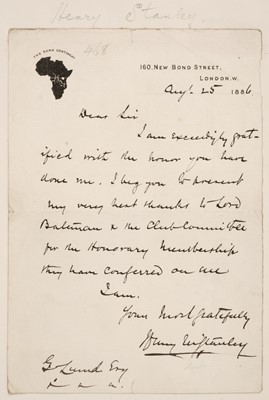 Henry Stanley
468
THE DARK CONTINENT
160, NEW BOND STREET,
LONDON. W.
Augt 25 1886
Dear Sir
I am exceedingly grat-
ified with the honor you have
done me. I beg you to present
my very best thanks to Lord
Bateman & the Club Committee
for the Honorary Membership
they have conferred on me
I am.
Yours Most gratefully
Henry M Stanley
G. Lund Esq